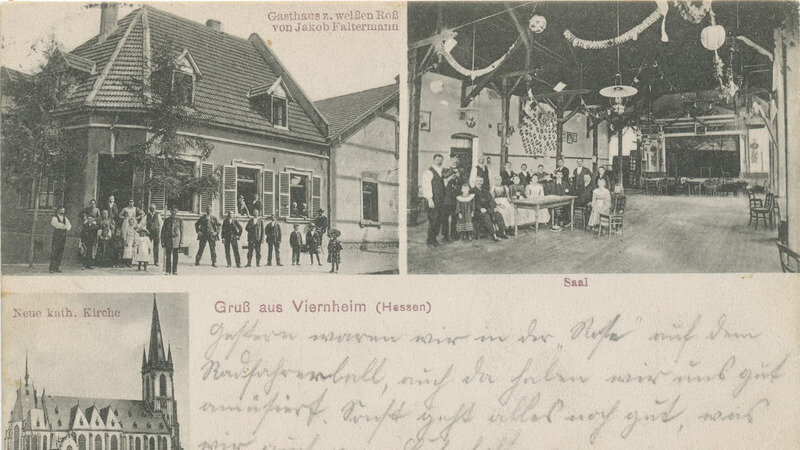 Gasthaus z. weißen Roß
von Jakob Faltermann
Saal
Neue kath. Kirche
Gruß aus Viernheim (Hessen)
Gestern waren wir in der "Rose" auf dem
Radfahrerball, auch da haben wir uns gut
amüsiert. Sonst geht alles noch gut, was
wir auch